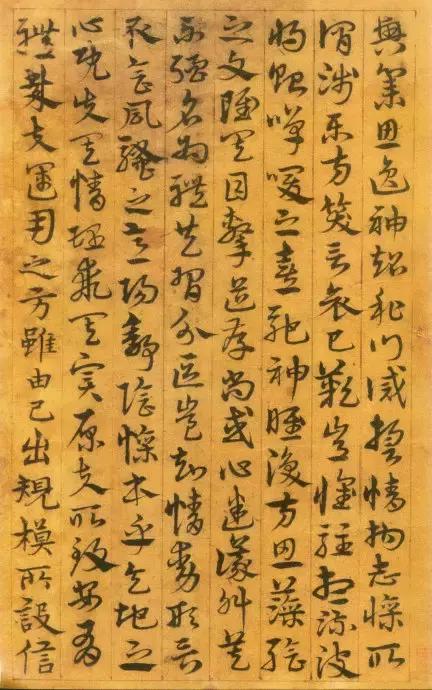 興集思逸神超私門誡誓情拘志慘所
謂涉樂方笑言哀已歎豈惟駐想流波
將貽嘽喛之奏馳神睢渙方思藻繪
之文雖其目擊道存尚或心迷議舛莫
不強名為體共習分區豈知情動形言
取會風騷之意陽舒陰慘本乎天地之
心既失其情理乖其實原夫所致安有
體哉夫運用之方雖由己出規模所設信